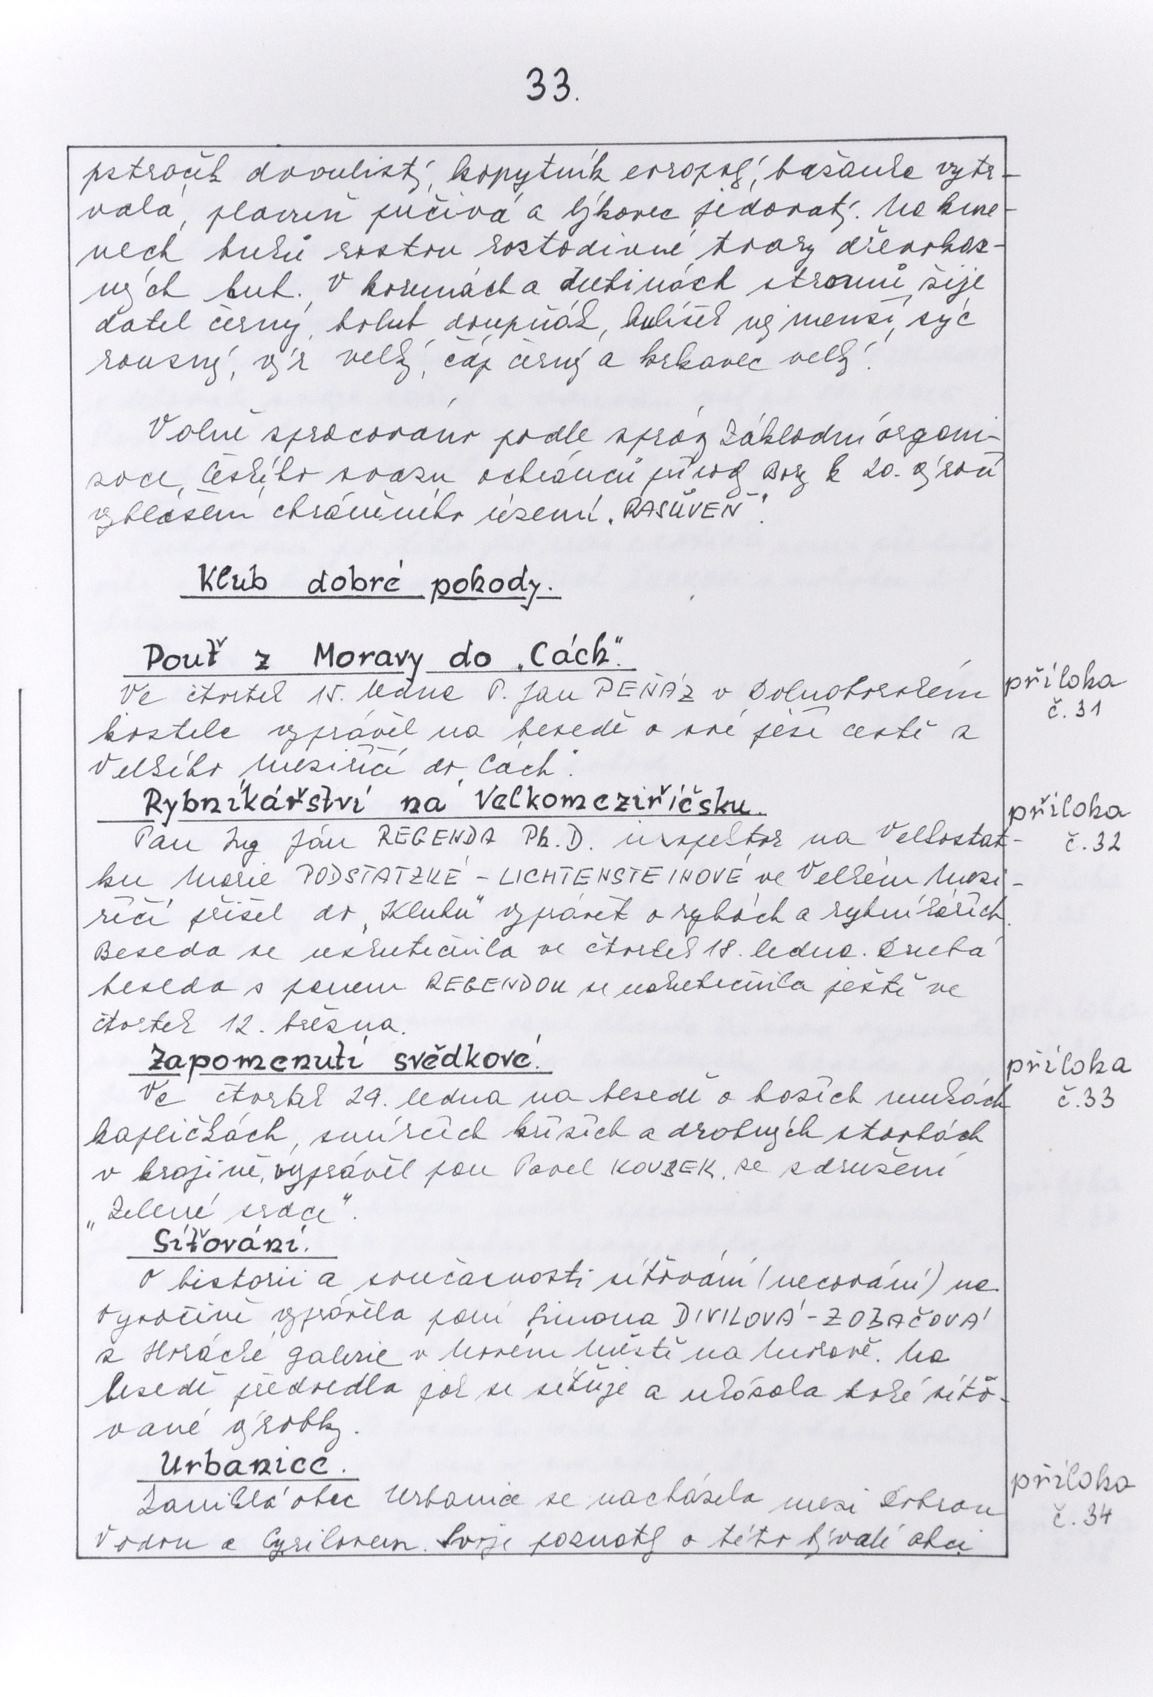 33.
pstroček dvoulistý, kopytník evropský, bažanka vytr-
valá, plavuň pučivá a lýkovec jedovatý. Na kme-
nech buků rostou roztodivné tvary dřevokaz-
ných hub. V korunách a dutinách stromů žije
datel černý, holub doupňák, kulíšek nejmenší, sýc
rousný, výr velký, čáp černý a krkavec velký.
Volně zpracováno podle zprávy Základní organi-
zace Českého svazu ochránců přírody Bory k 20. výročí
vyhlášení chráněného území „RASŮVEŇ".
Klub dobré pohody.
Pouť z Moravy do „Cách".
Ve čtvrtek 15. ledna P. Jan PEŇÁZ v Dolnoborském
kostele vyprávěl na besedě o své pěší cestě z
Velkého Meziříčí do Cách.
příloha
č. 31
Rybníkářství na Velkomeziříčsku.
Pan Ing Ján REGENDA Ph.D. inspektor na Velkostat-
ku Marie PODSTATZKÉ - LICHTENSTEINOVÉ ve Velkém Mezi-
říčí přišel do „Klubu" vyprávět o rybách a rybníkářích.
Beseda se uskutečnila ve čtvrtek 18. ledna. Druhá
beseda s panem REGENDOU se uskutečnila ještě ve
čtvrtek 12. března.
příloha
č. 32
Zapomenutí svědkové.
Ve čtvrtek 29. ledna na besedě o božích mukách
kapličkách, smírčích křížích a drobných stavbách
v krajině, vyprávěl pan Pavel KOUBEK, ze sdružení
„Zelené srdce".
příloha
č. 33
Síťování.
O historii a současnosti síťování (necování) na
Vysočině vyprávěla paní Simona DIVILOVÁ-
z Horácké galerie v Novém Městě na Moravě. Na
besedě předvedla jak se síťuje a ukázala také síťo-
vané výrobky.
Urbanice.
Zaniklá obec Urbanice se nacházela mezi Dobrou
Vodou a Cyrilovem. Svoje poznatky o této bývalé obci
příloha
č. 34